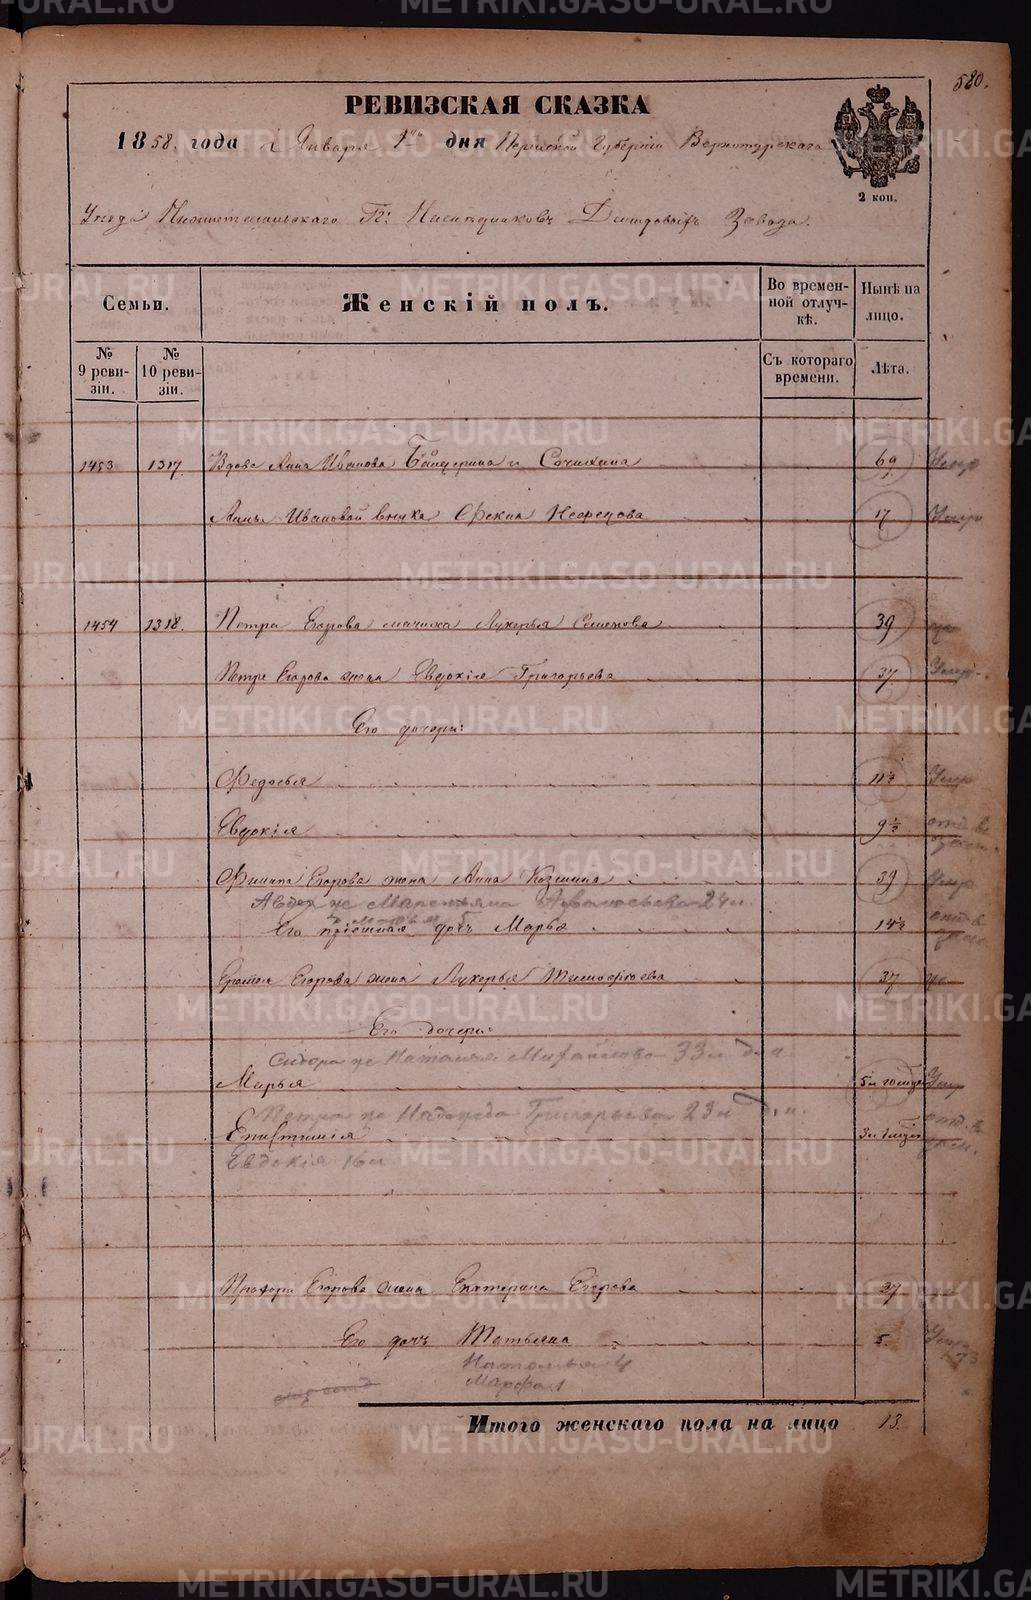 580.
РЕВИЗСКАЯ СКАЗКА
1858. года Января 1го дня Пермской Губерніи Верхотурскаго
2 коп.
Уезда Нижнетагильскаго Гг: Наследниковъ Демидовыхъ Завода.
Семьи.
Женскій полъ.
Во временной отлучкѣ.
Нынѣ на лицо.
№ 9 ревизіи.
№ 10 ревизіи.
Съ котораго времени.
Лѣта.
1453 1317 Вдова Анна Иванова и Сочихина 69 Умер
Анны Ивановой внучка Фекла Нефедова 17 Умер
1454 1318. Петра Егорова мачиха Лукерья Семенова 39
Петра Егорова жена Евдокія Григорьева 37 Умер.
Его дочери:
Федосья 11½ Умер
Евдокія 9½
Филипа Егорова жена Анна Козмина 39 Умер
Авдея же Маремьяна 24 л
Его пріемная дочь Марья 14½
Егорова жена Лукерья Тимофеева 37
Его дочери:
Сидора же Наталья Михайлова 33 л
Марья 5 Умер
Петра же Надежда Григорьева 23 л
Епистимія 3
Евдокія 16 л
Прохора Егорова жена Екатерина Егорова 27
Его дочь Татьяна 5. Умер 73
Наталья 4
Марфа 1
Итого женскаго пола на лицо 13.
METRIKI.GASO-URAL.RU